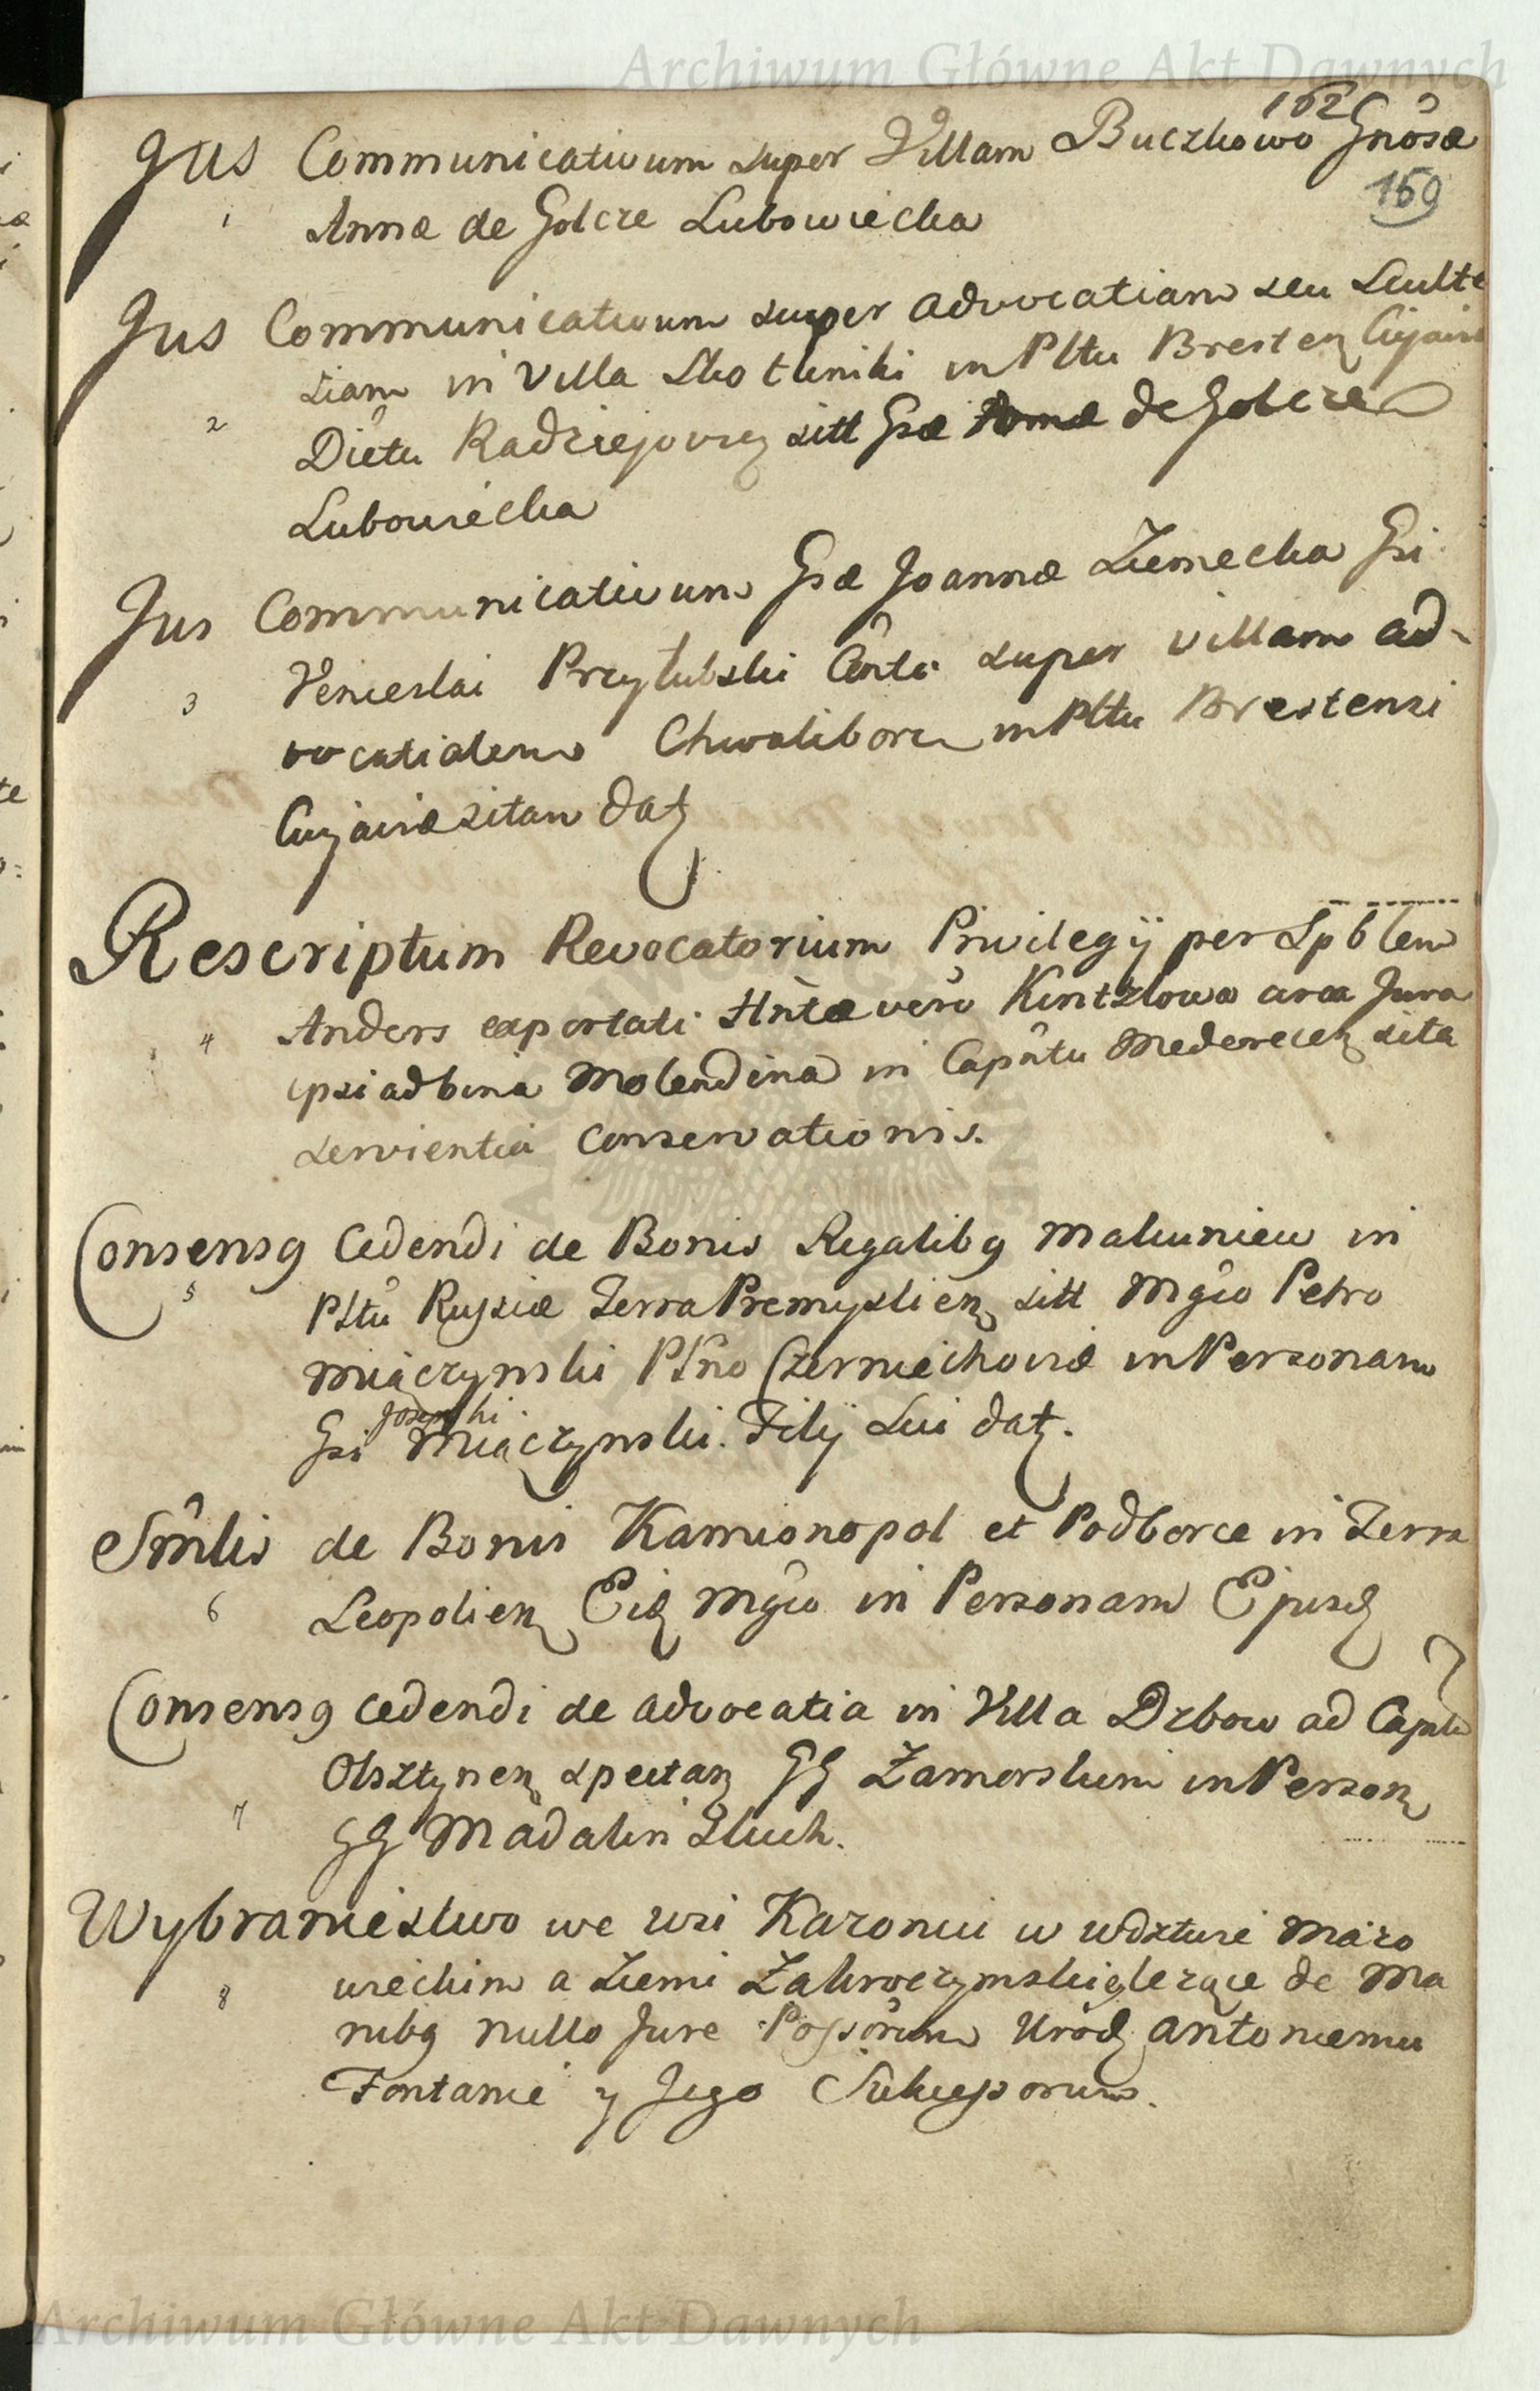 Archiwum Główne Akt Dawnych
162
Jus Communicativum super Villam Buczkowo Gnôsæ
159
1 Annæ de Golcze Lubowiecka
Jus Communicativum super advocatiam seu Sculte
tiam in Villa Skotniki in Pltu Bresten Cujaviæ
2 Dictu Radziejovien sitt Gsæ Annæ de Golcze
Lubowiecka
Jus Communicativum Gsæ Joannæ Ziemecka Gsi
3 Venceslai Przyłubski Conti super villam ad-
vocatialem Chwaliborz in Pltu Brestensi
Cujaviæ sitam dat
Rescriptum Revocatorium Privilegij per Spblem
4 Anders exportati Hntæ vero Kintzlowa circa Jura
ipsi ad bina Molendina in Capntu Mederecen sita
servientia Conservationis.
Consensg Cedendi de Bonis Regalibg Malunieu in
5 Pltu Russiæ Terra Premyslien sitt Mgco Petro
Miączynski Plno Czerniechoviæ in Personam
Josephi
Gsi Miączynski. Filij Sui dat.
Smlis de Bonis Kamionopol et Podborce in Terra
6 Leopolien Eid Mgco in Personam Ejusd
Consensg cedendi de advocatia in Villa Dzbow ad Captu
Olsztynen spectan GG Zamorskim in Person
7 GG Madalin Skich.
Wybraniestwo we wsi Karoniu w wdztwie Mazo
8 wieckim a Ziemi Zakroczymskię leżące de Ma
nibg nullo Jure Possorum Urod Antoniemu
Fontanie y Jego Sukcessorum.
Archiwum Główne Akt Dawnych